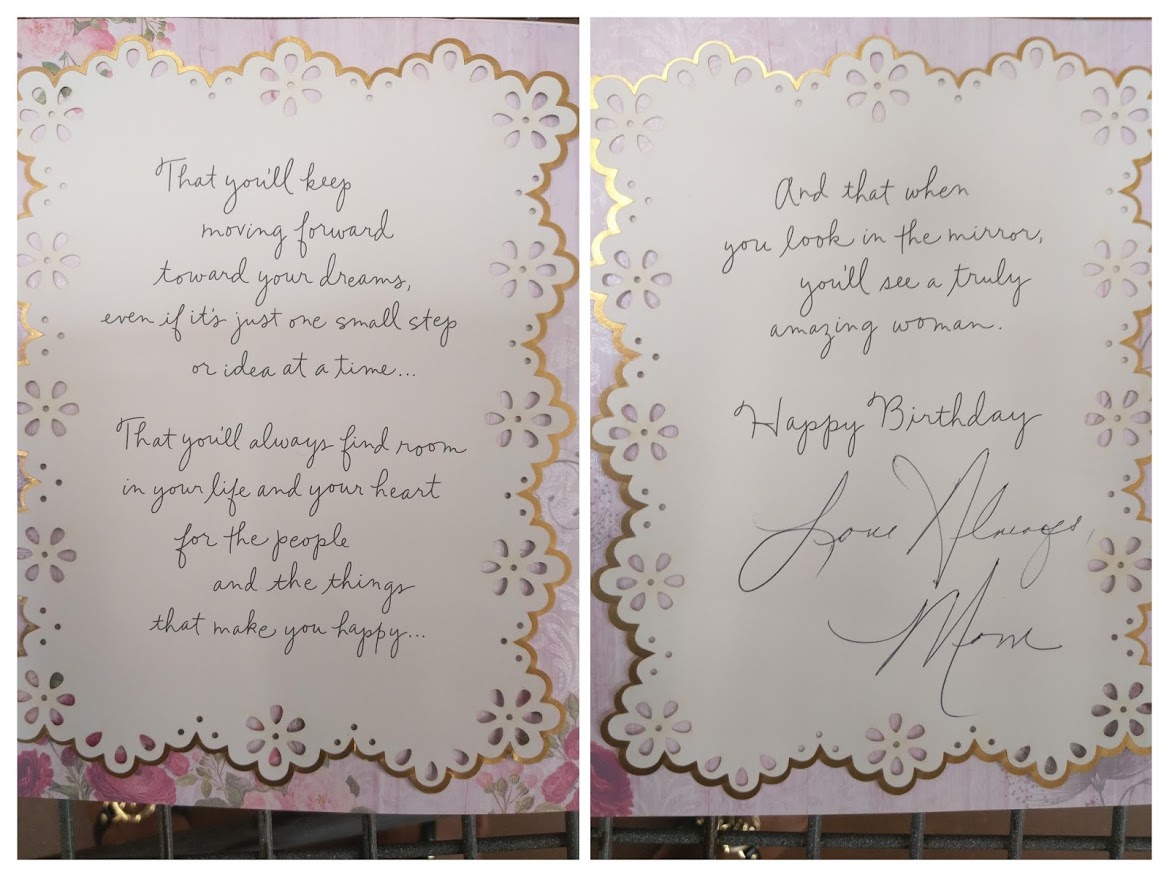 That you'll keep
moving forward
toward your dreams,
even if it's just one small step
or idea at a time...
That you'll always find room
in your life and your heart
for the people
and the things
that make you happy...
And that when
you look in the mirror,
you'll see a truly
amazing woman.
Happy Birthday
Love Always,
Mom